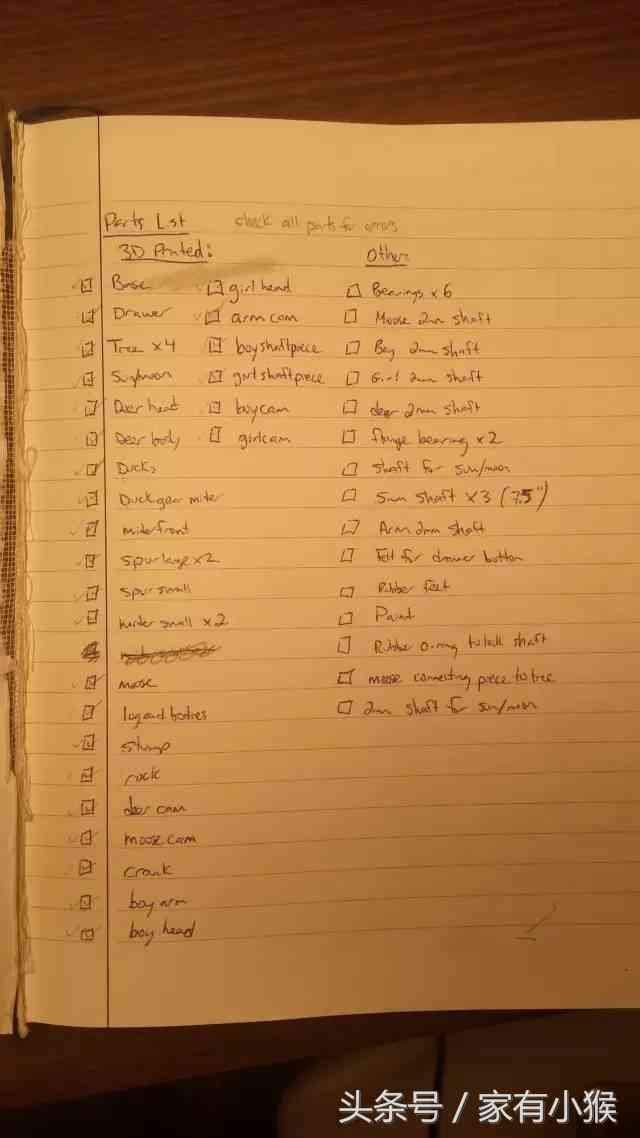 Parts List
check all parts for errors
3D Printed:
Base
Drawer
Tree x4
Sun/moon
Deer head
Deer body
Ducks
Duck gear miter
miter front
spur large x2
spur small
miter small x2
moose
log and bodies
stump
rock
deer cam
moose cam
crank
boy arm
boy head
girl head
arm cam
boy shaft piece
girl shaft piece
boy cam
girl cam
Other:
Bearings x6
Moose 2mm shaft
Boy 2mm shaft
Girl 2mm shaft
deer 2mm shaft
flange bearing x2
shaft for sun/moon
5mm shaft x3 (7.5")
Arm 2mm shaft
Felt for drawer bottom
Rubber feet
Paint
Rubber O-ring to lock shaft
moose connecting piece to tree
2mm shaft for sun/moon
头条号 / 家有小猴